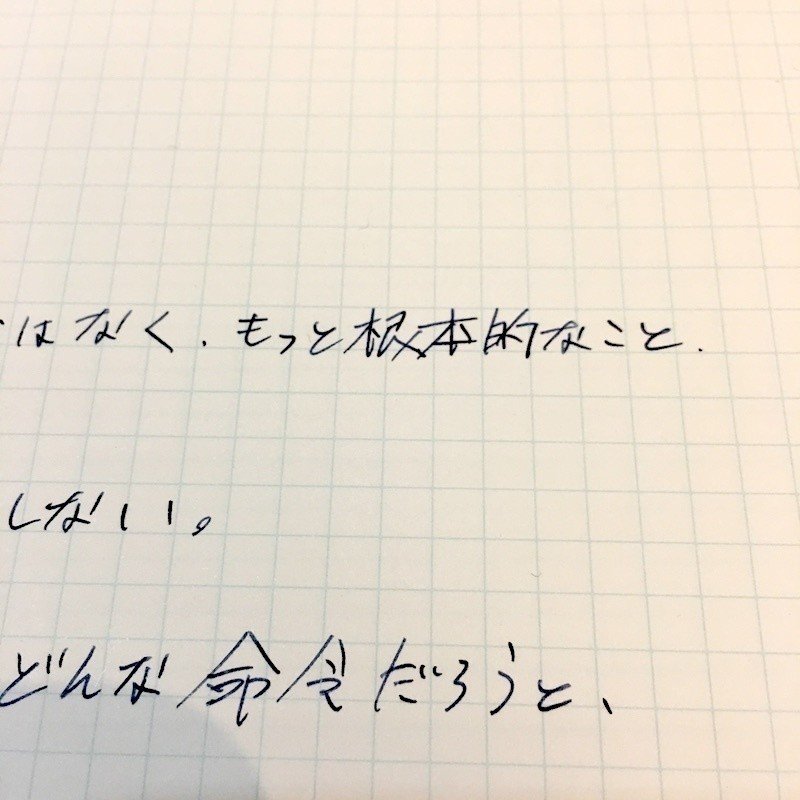 はなく、もっと根本的なこと.
しない。
どんな命令だろうと、